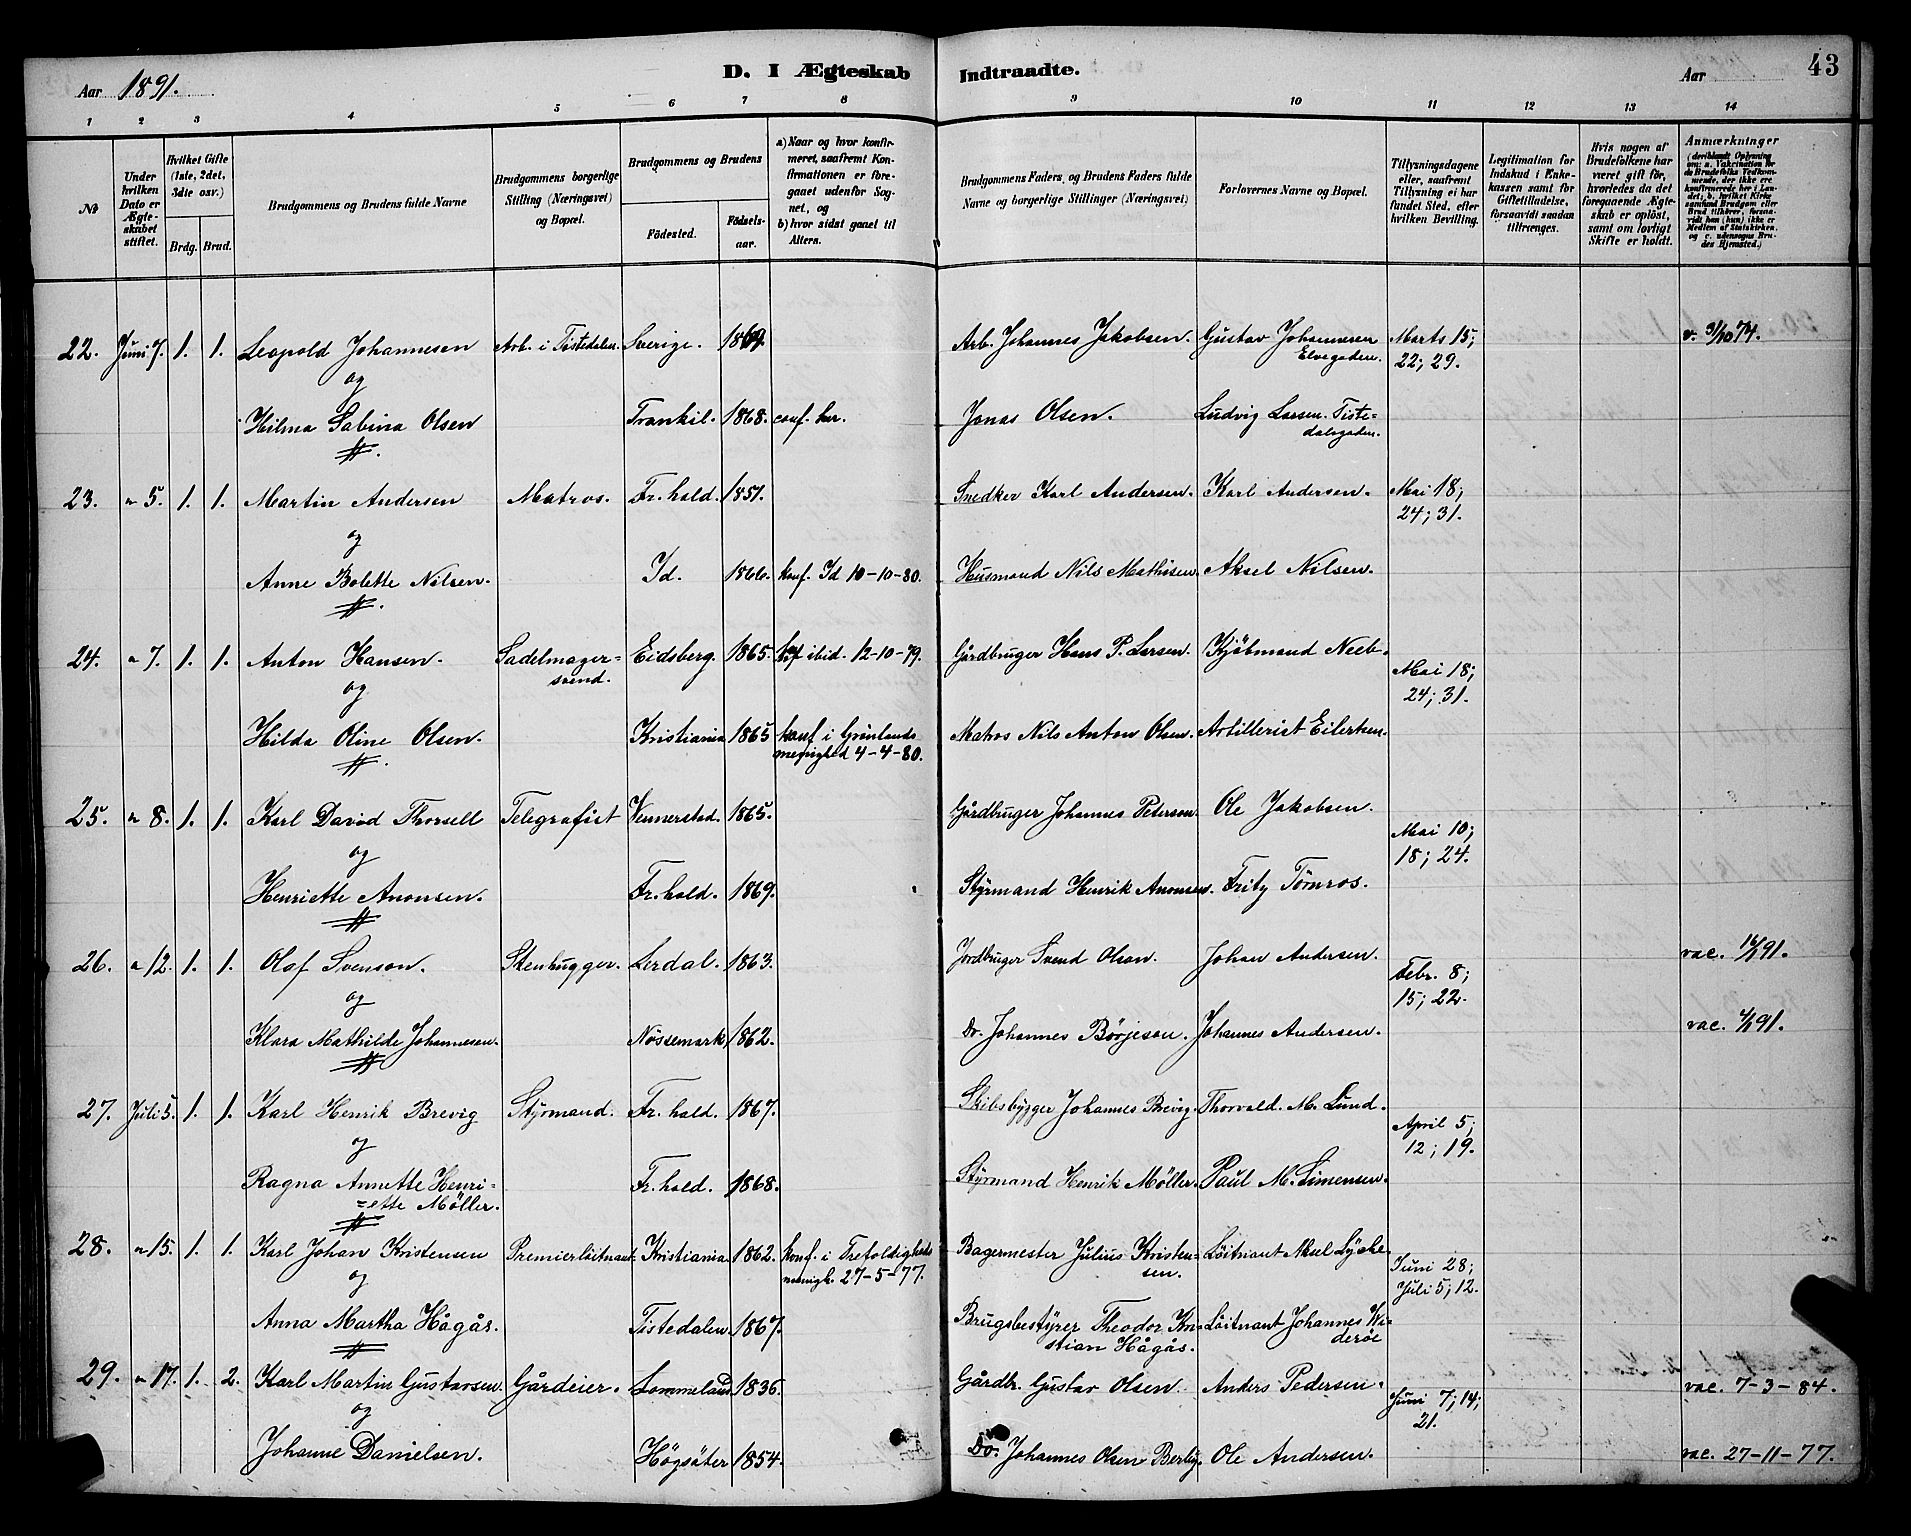 Aar 1891. D. I Ægteskab Indtraadte. Aar 43
1 2 3 4 5 6 7 8 9 10 11 12 13 14
№
Under hvilken Dato er Ægteskabet stiftet.
Hvilket Gifte (1ste, 2det, 3dte osv.)
Brdg. Brud.
Brudgommens og Brudens fulde Navne
Brudgommens borgerlige Stilling (Næringsvei) og Bopæl.
Brudgommens og Brudens
Fødested. Fødselsaar.
a) Naar og hvor konfirmeret, saafremt Konfirmationen er foregaaet udenfor Sognet, og
b) hvor sidst gaaet til Alters.
Brudgommens Faders, og Brudens Faders fulde Navne og borgerlige Stillinger (Næringsvei)
Forlovernes Navne og Bopæl.
Tillysningsdagene eller, saafremt Tillysning ei har fundet Sted, efter hvilken Bevilling.
Legitimation for Indskud i Enkekassen samt for Giftetilladelse, forsaavidt saadan tiltrænges.
Hvis nogen af Brudefolkene har været gift før, hvorledes da det foregaaende Ægteskab er opløst, samt om lovligt Skifte er holdt.
Anmærkninger
(deriblandt Oplysning om: a. Vakcination for de Brudefolks Vedkommende, der ikke ere konfirmerede her i Landet; b. hvilket Kirkesamfund Brudgom eller Brud tilhører, forsaavidt han (hun) ikke er Medlem af Statskirken, og c. udensogns Brudes Hjemsted.)
22. Juni 7. 1. 1. Leopold Johannesen Arb. i Tistedalen. Sverige. 1869. Arb. Johannes Jakobsen. Gustav Johannesen Elvegaden. Marts 15; 22; 29. v. 31/10 74.
og
Hilma Sabina Olsen Trankil. 1868. conf. her. Jonas Olsen. Ludvig Larsen. Tistedalsgaden.
23. " 5. 1. 1. Martin Andersen Matros. Fr.hald. 1851. Snedker Karl Andersen. Karl Andersen. Mai 18; 24; 31.
og
Anne Bolette Nilsen. Id. 1866. konf. Id 10-10-80. Husmand Nils Mathisen. Aksel Nilsen.
24. " 7. 1. 1. Anton Hansen. Sadelmagersvend. Eidsberg. 1865. konf ibid. 12-10-79. Gårdbruger Hans P. Larsen. Kjöbmand Neeb. Mai 18; 24; 31.
og
Hilda Oline Olsen. Kristiania 1865 konf i Grönlands menighed 4-4-80. Matros Nils Anton Olsen. Artillerist Eilertsen.
25. " 8. 1. 1. Karl David Thorsell Telegrafist Vennerstad. 1865. Gårdbruger Johannes Peterson. Ole Jakobsen. Mai 10; 18; 24.
og
Henriette Anonsen. Fr.hald. 1869. Styrmand Henrik Anonsen. Fritz Törnros.
26. " 12. 1. 1. Olaf Svenson. Stenhugger. Lerdal. 1863. Jordbruger Svend Olson. Johan Andersen. Febr. 8; 15; 22. vac.
og
Klara Mathilde Johannesen. Nössemark 1862. Do. Johannes Börjeson. Johannes Andersen. vac.
27. Juli 5. 1. 1. Karl Henrik Brevig Styrmand. Fr.hald. 1867. Skibsbygger Johannes Brevig. Thorvald. M. Lund. April 5; 12; 19.
og
Ragna Annette Henriette Möller. Fr.hald. 1868. Styrmand Henrik Möller. Paul M. Simensen.
28. " 15. 1. 1. Karl Johan Kristensen Premierlöitnant. Kristiania 1862. konf. i Trefoldigheds menigh. 27-5-77. Bagermester Julius Kristensen. Löitnant Aksel Lyche. Juni 28; Juli 5; 12.
og
Anna Martha Hågås. Tistedalen 1867. Brugsbestyrer Theodor Kristian Hågås. Löitnant Johannes Wideröe
29. " 17. 1. 2. Karl Martin Gustavsen. Gårdeier. Sommeland 1836. Gårdbr. Gustav Olsen. Anders Pedersen. Juni 7; 14; 21. vac. 7-3-84.
og
Johanne Danielsen. Högsäter 1854. Do. Johannes Olsen Berby. Ole Andersen. vac. 27-11-77.